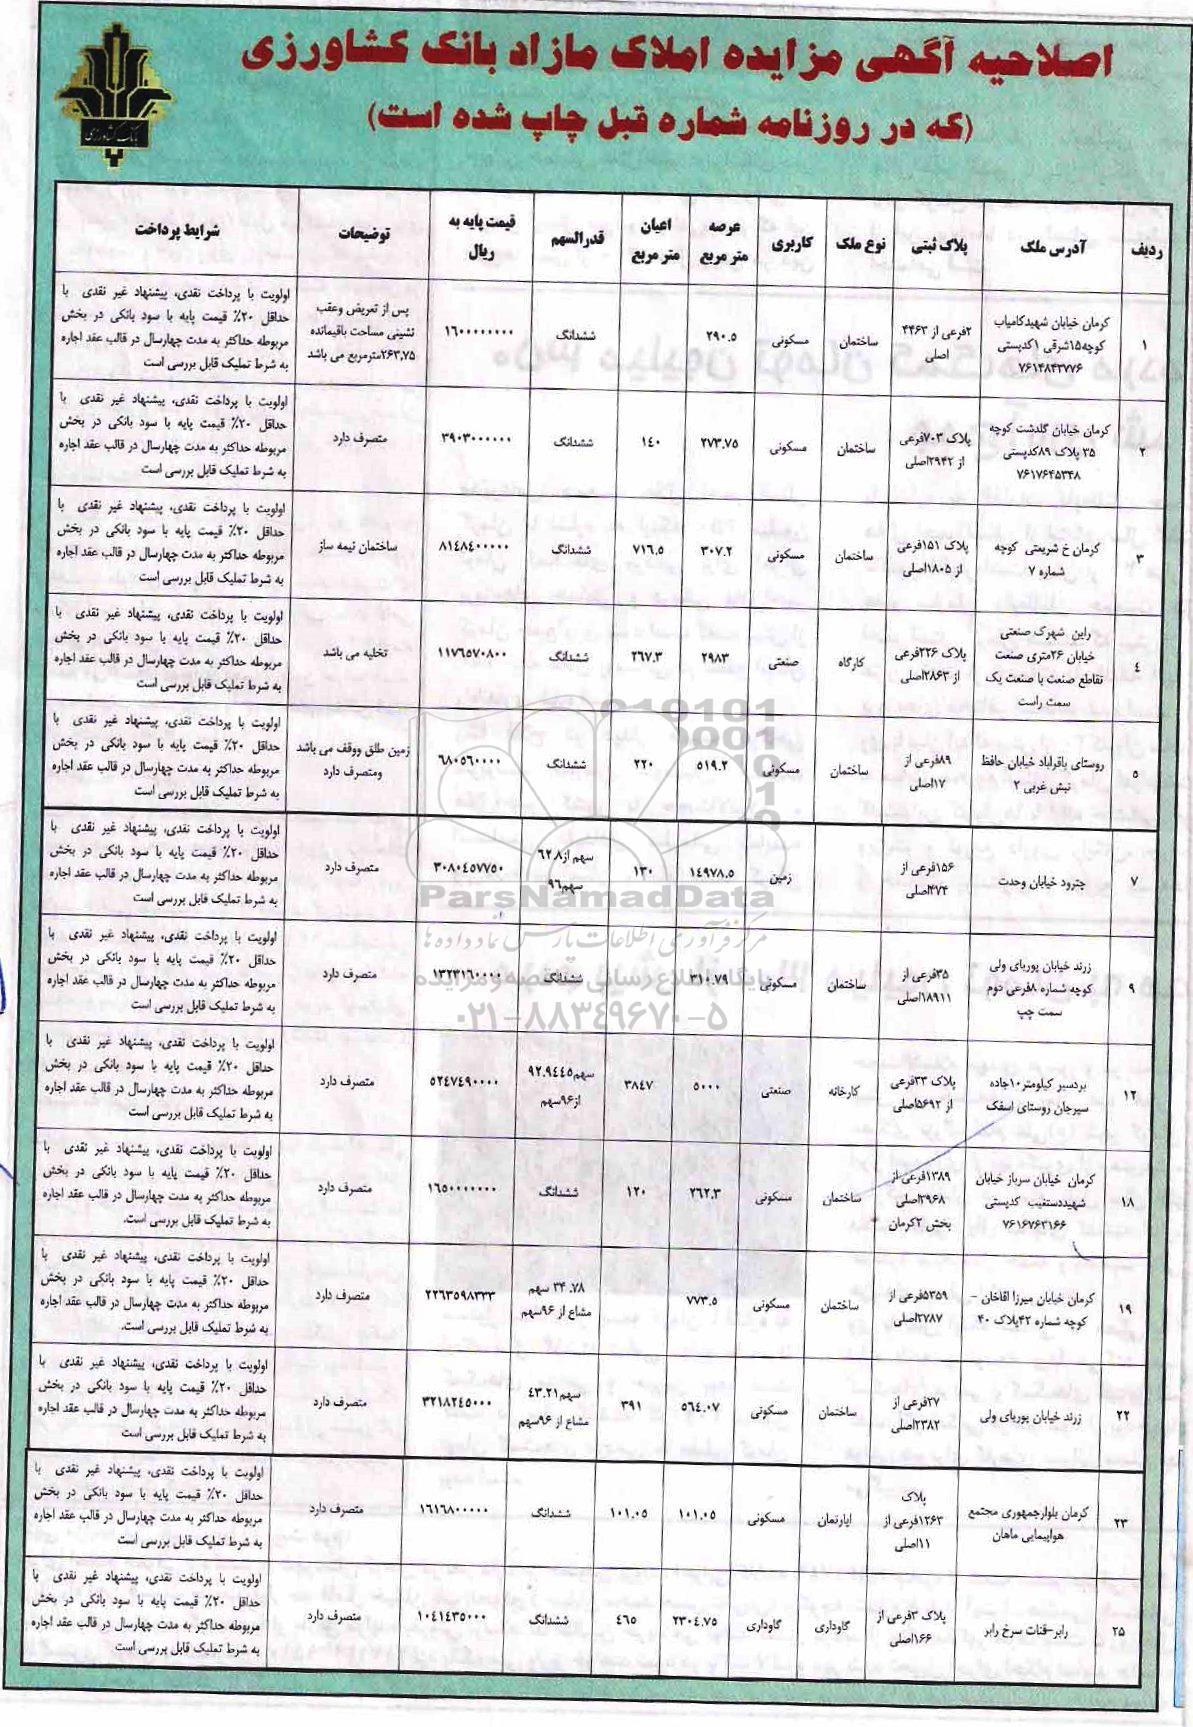 اصلاحیه آگهی مزایده املاک مازاد بانک کشاورزی
(که در روزنامه شماره قبل چاپ شده است)
بانک کشاورزی
ردیف | آدرس ملک | پلاک ثبتی | نوع ملک | کاربری | عرصه متر مربع | اعیان متر مربع | قدرالسهم | قیمت پایه به ریال | توضیحات | شرایط پرداخت
۱ | کرمان خیابان شهیدکامیاب کوچه۱۵شرقی ۱کدپستی ۷۶۱۴۸۴۳۷۷۶ | ۲فرعی از ۴۴۶۳ اصلی | ساختمان | مسکونی | ۲۹۰.۵ | | ششدانگ | ۱۶۰۰۰۰۰۰۰۰۰ | پس از تعریض وعقب نشینی مساحت باقیمانده ۲۶۳,۷۵مترمربع می باشد | اولویت با پرداخت نقدی، پیشنهاد غیر نقدی با حداقل ۲۰٪ قیمت پایه با سود بانکی در بخش مربوطه حداکثر به مدت چهارسال در قالب عقد اجاره به شرط تملیک قابل بررسی است
۲ | کرمان خیابان گلدشت کوچه ۳۵ پلاک ۸۹کدپستی ۷۶۱۷۶۴۵۳۴۸ | پلاک ۷۰۳فرعی از ۲۹۴۲اصلی | ساختمان | مسکونی | ۲۷۳.۷۵ | ۱۴۰ | ششدانگ | ۳۹۰۳۰۰۰۰۰۰ | متصرف دارد | اولویت با پرداخت نقدی، پیشنهاد غیر نقدی با حداقل ۲۰٪ قیمت پایه با سود بانکی در بخش مربوطه حداکثر به مدت چهارسال در قالب عقد اجاره به شرط تملیک قابل بررسی است
۳ | کرمان خ شریعتی کوچه شماره ۷ | پلاک ۱۵۱فرعی از ۱۸۰۵اصلی | ساختمان | مسکونی | ۳۰۷.۲ | ۷۱۶.۵ | ششدانگ | ۸۱۴۸۴۰۰۰۰۰ | ساختمان نیمه ساز | اولویت با پرداخت نقدی، پیشنهاد غیر نقدی با حداقل ۲۰٪ قیمت پایه با سود بانکی در بخش مربوطه حداکثر به مدت چهارسال در قالب عقد اجاره به شرط تملیک قابل بررسی است
۴ | راین شهرک صنعتی خیابان ۲۶متری صنعت تقاطع صنعت با صنعت یک سمت راست | پلاک ۲۲۶فرعی از ۲۸۶۳اصلی | کارگاه | صنعتی | ۲۹۸۳ | ۲۶۷.۳ | ششدانگ | ۱۱۷۶۵۷۰۸۰۰ | تخلیه می باشد | اولویت با پرداخت نقدی، پیشنهاد غیر نقدی با حداقل ۲۰٪ قیمت پایه با سود بانکی در بخش مربوطه حداکثر به مدت چهارسال در قالب عقد اجاره به شرط تملیک قابل بررسی است
۵ | روستای باقرآباد خیابان حافظ نبش غربی ۲ | ۸۹فرعی از ۱۷اصلی | ساختمان | مسکونی | ۵۱۹.۲ | ۲۲۰ | ششدانگ | ۶۸۰۵۶۰۰۰۰ | زمین طلق ووقف می باشد ومتصرف دارد | اولویت با پرداخت نقدی، پیشنهاد غیر نقدی با حداقل ۲۰٪ قیمت پایه با سود بانکی در بخش مربوطه حداکثر به مدت چهارسال در قالب عقد اجاره به شرط تملیک قابل بررسی است
۷ | چترود خیابان وحدت | ۱۵۶فرعی از ۴۷۴اصلی | | زمین | ۱۴۹۷۸.۵ | ۱۳۰ | ۶۲.۸سهم از ۹۶سهم | ۳۰۸۰۴۵۷۷۵۰ | متصرف دارد | اولویت با پرداخت نقدی، پیشنهاد غیر نقدی با حداقل ۲۰٪ قیمت پایه با سود بانکی در بخش مربوطه حداکثر به مدت چهارسال در قالب عقد اجاره به شرط تملیک قابل بررسی است
۹ | زرند خیابان پوریای ولی کوچه شماره ۸فرعی دوم سمت چپ | ۳۵فرعی از ۱۸۹۱۱اصلی | ساختمان | مسکونی | ۳۱۰.۷۹ | | ششدانگ | ۱۳۲۳۱۶۰۰۰۰ | متصرف دارد | اولویت با پرداخت نقدی، پیشنهاد غیر نقدی با حداقل ۲۰٪ قیمت پایه با سود بانکی در بخش مربوطه حداکثر به مدت چهارسال در قالب عقد اجاره به شرط تملیک قابل بررسی است
۱۲ | بردسیر کیلومتر۱۰جاده سیرجان روستای اسفک | پلاک ۳۳فرعی از ۵۶۹۲اصلی | کارخانه | صنعتی | ۵۰۰۰ | ۳۸۴۷ | ۹۲.۹۴۴۵سهم از۹۶سهم | ۵۲۴۷۴۹۰۰۰۰ | متصرف دارد | اولویت با پرداخت نقدی، پیشنهاد غیر نقدی با حداقل ۲۰٪ قیمت پایه با سود بانکی در بخش مربوطه حداکثر به مدت چهارسال در قالب عقد اجاره به شرط تملیک قابل بررسی است
۱۸ | کرمان خیابان سرباز خیابان شهیددستغیب کدپستی ۷۶۱۶۷۶۳۱۶۶ | ۱۳۸۹فرعی از ۲۹۶۸اصلی بخش ۲کرمان | ساختمان | مسکونی | ۲۶۲.۳ | ۱۲۰ | ششدانگ | ۱۶۵۰۰۰۰۰۰۰۰ | متصرف دارد | اولویت با پرداخت نقدی، پیشنهاد غیر نقدی با حداقل ۲۰٪ قیمت پایه با سود بانکی در بخش مربوطه حداکثر به مدت چهارسال در قالب عقد اجاره به شرط تملیک قابل بررسی است.
۱۹ | کرمان خیابان میرزا اقاخان - کوچه شماره ۴۲پلاک ۴۰ | ۵۳۵۹فرعی از ۲۷۸۷اصلی | ساختمان | مسکونی | ۷۷۳.۵ | | ۳۴.۷۸ سهم مشاع از ۹۶سهم | ۲۲۶۳۵۹۸۳۳۳ | متصرف دارد | اولویت با پرداخت نقدی، پیشنهاد غیر نقدی با حداقل ۲۰٪ قیمت پایه با سود بانکی در بخش مربوطه حداکثر به مدت چهارسال در قالب عقد اجاره به شرط تملیک قابل بررسی است.
۲۲ | زرند خیابان پوریای ولی | ۲۷فرعی از ۲۳۸۲اصلی | ساختمان | مسکونی | ۵۶۴.۰۷ | ۳۹۱ | ۴۳.۲۱سهم مشاع از ۹۶سهم | ۳۲۱۸۲۴۵۰۰۰ | متصرف دارد | اولویت با پرداخت نقدی، پیشنهاد غیر نقدی با حداقل ۲۰٪ قیمت پایه با سود بانکی در بخش مربوطه حداکثر به مدت چهارسال در قالب عقد اجاره به شرط تملیک قابل بررسی است
۲۳ | کرمان بلوارجمهوری مجتمع هواپیمایی ماهان | پلاک ۱۲۶۳فرعی از ۱۱اصلی | اپارتمان | مسکونی | ۱۰۱.۰۵ | ۱۰۱.۰۵ | ششدانگ | ۱۶۱۶۸۰۰۰۰۰ | متصرف دارد | اولویت با پرداخت نقدی، پیشنهاد غیر نقدی با حداقل ۲۰٪ قیمت پایه با سود بانکی در بخش مربوطه حداکثر به مدت چهارسال در قالب عقد اجاره به شرط تملیک قابل بررسی است
۲۵ | رابر-قنات سرخ رابر | پلاک ۳فرعی از ۱۶۶اصلی | گاوداری | گاوداری | ۲۳۰۴.۷۵ | ۴۶۵ | ششدانگ | ۱۰۴۱۴۳۵۰۰۰ | متصرف دارد | اولویت با پرداخت نقدی، پیشنهاد غیر نقدی با حداقل ۲۰٪ قیمت پایه با سود بانکی در بخش مربوطه حداکثر به مدت چهارسال در قالب عقد اجاره به شرط تملیک قابل بررسی است
ParsNamadData
مرکز فرآوری اطلاعات پارس نماد داده ها
پایگاه اطلاع رسانی مناقصه و مزایده
۰۲۱-۸۸۳۴۹۶۷۰-۵